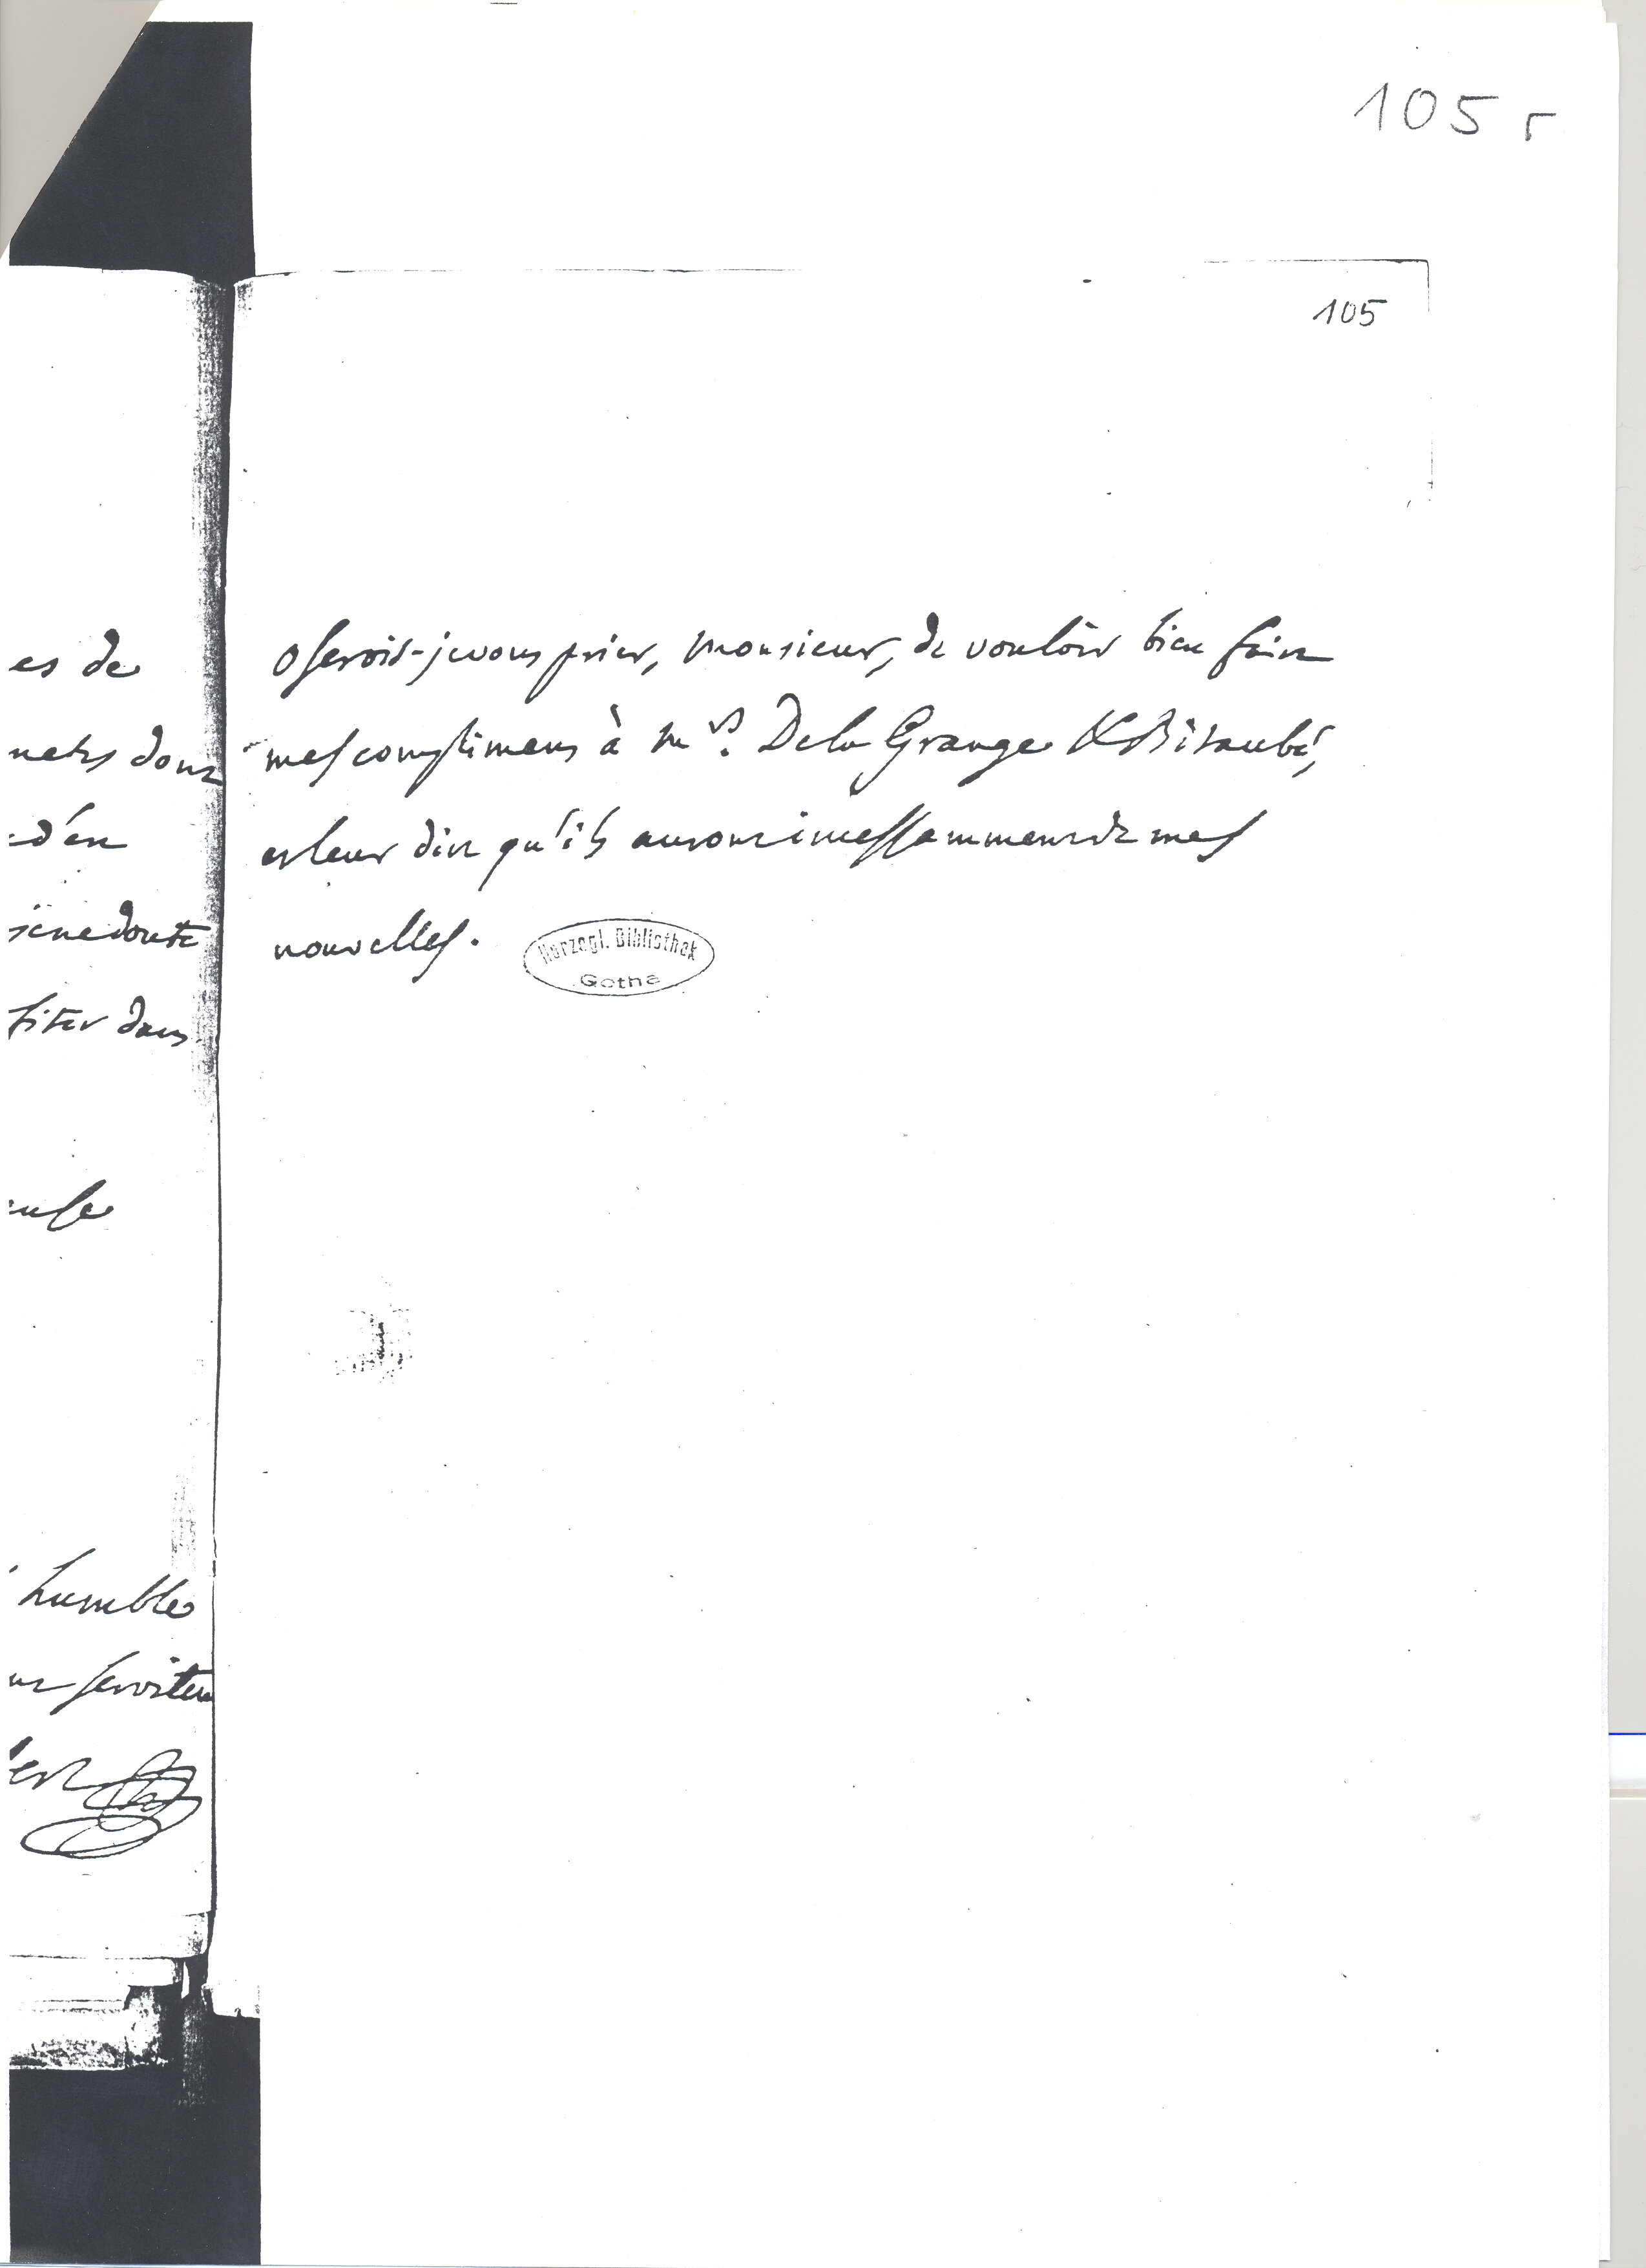 105 r
105
es de
nets dont
d'en
je ne doute
fiter dans
euse
humble
nt serviteu
ert
oserois-je vous prier, monsieur, de vouloir bien faire
mes complimens à mrs. De la Grange & Bitaubé,
et leur dire qu'ils auront incessamment de mes
nouvelles.
Herzogl. Bibliothek
Gotha